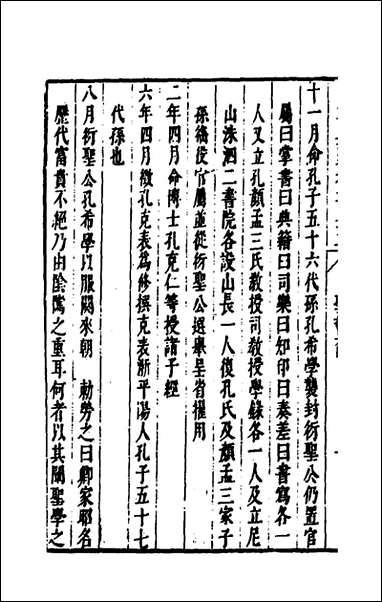 十一月命孔子五十六代孫孔希學襲封衍聖公仍置官
屬曰掌書曰典籍曰司樂曰知印曰奏差曰書寫各一
人又立孔顏孟三氏教授司教授學錄各一人及立尼
山洙泗二書院各設山長一人復孔氏及顏孟三家子
孫徭役官屬並從衍聖公選舉呈省擢用
二年四月命博士孔克仁等授諸子經
六年四月徵孔克表為修撰克表浙平湯人孔子五十七
代孫也
八月衍聖公孔希學以服闋來朝　勅勞之曰卿家耶名
歷代富貴不絕乃由陰隲之重耳何者以其闡聖學之